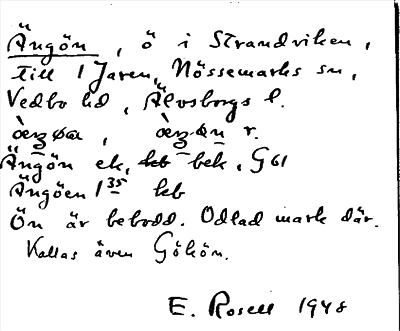 Ängön, ö i Strandviken,
till 1 Jaren, Nössemarks sn,
Vedbo hd, Älvsborgs l.
Ängön ek, bek, G61
Ängöen 1 35 keb
Ön är bebodd. Odlad mark där.
Kallas även Gökön.
E. Rosell 1948